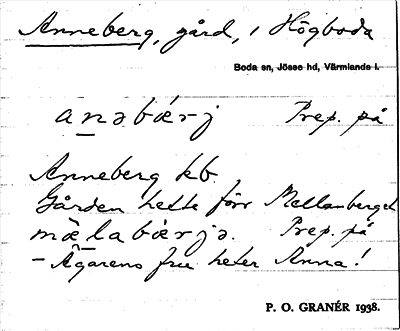 Anneberg, gård, i Högboda
Boda sn, Jösse hd, Värmlands l.
anəbærj Prep. på
Anneberg kb.
Gården hette förr Mellanberget
mælabærjə. Prep. på
– Ägarens fru heter Anna!
P. O. GRANÉR 1938.